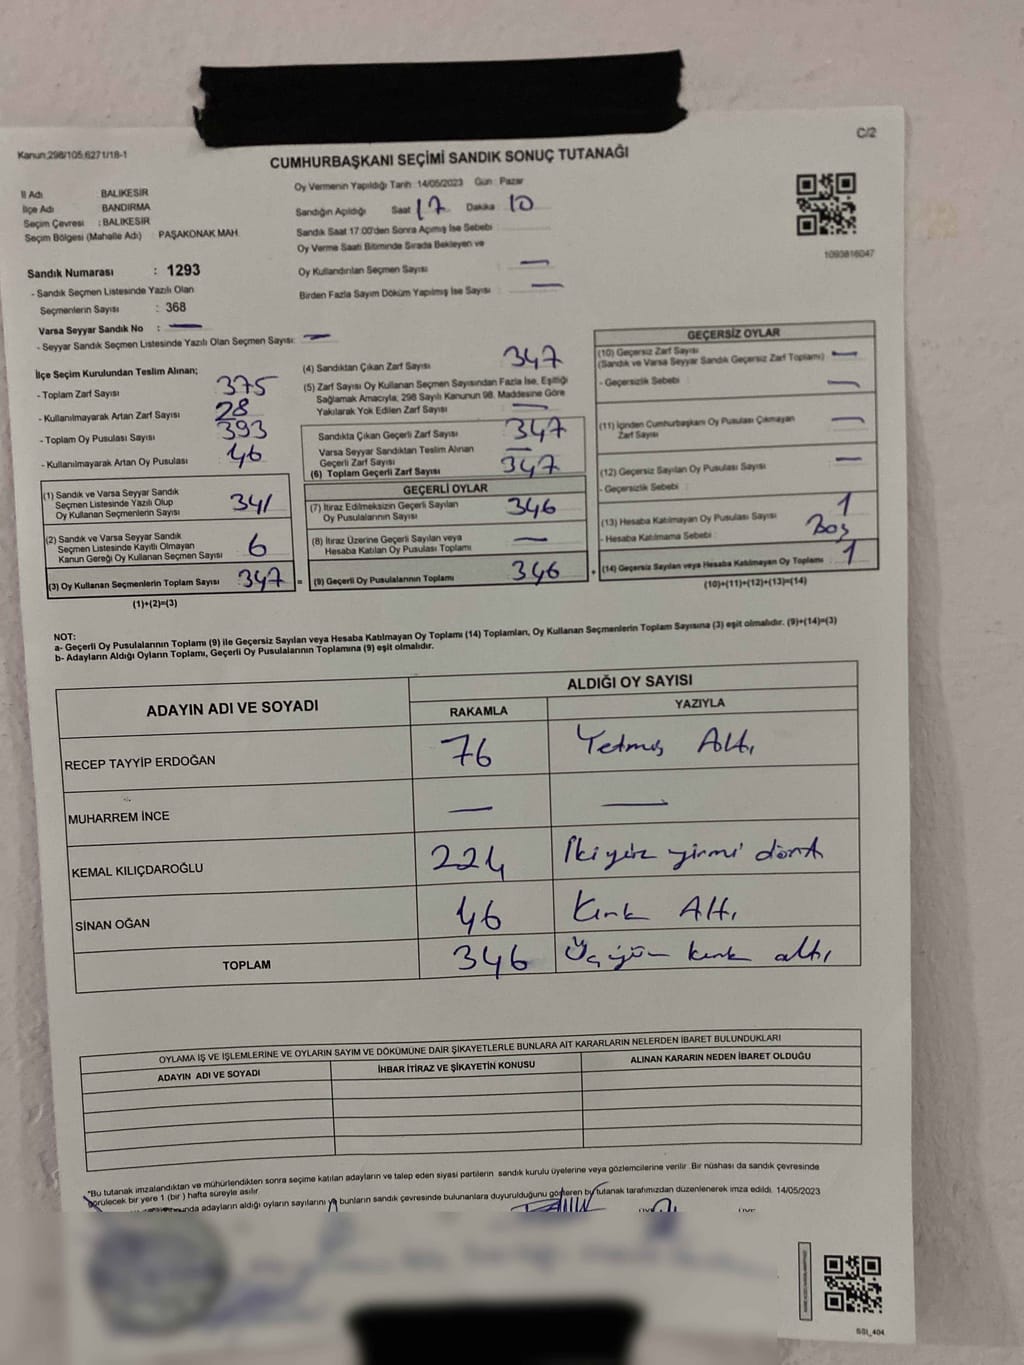 C/2
Kanun;298/105;6271/18-1
CUMHURBAŞKANI SEÇİMİ SANDIK SONUÇ TUTANAĞI
İl Adı BALIKESİR
İlçe Adı BANDIRMA
Seçim Çevresi : BALIKESİR
Seçim Bölgesi (Mahalle Adı) : PAŞAKONAK MAH.
Oy Vermenin Yapıldığı Tarih :14/05/2023 Gün : Pazar
Sandığın Açıldığı Saat 17 Dakika 10
Sandık Saat 17:00'den Sonra Açımış İse Sebebi :
Oy Verme Saati Bitiminde Sırada Bekleyen ve
Oy Kullandırılan Seçmen Sayısı : —
Birden Fazla Sayım Döküm Yapılmış İse Sayısı : —
1093816047
Sandık Numarası : 1293
- Sandık Seçmen Listesinde Yazılı Olan
Seçmenlerin Sayısı : 368
Varsa Seyyar Sandık No : —
- Seyyar Sandık Seçmen Listesinde Yazılı Olan Seçmen Sayısı: —
İlçe Seçim Kurulundan Teslim Alınan;
- Toplam Zarf Sayısı 375
- Kullanılmayarak Artan Zarf Sayısı 28
- Toplam Oy Pusulası Sayısı 393
- Kullanılmayarak Artan Oy Pusulası 46
(1) Sandık ve Varsa Seyyar Sandık
Seçmen Listesinde Yazılı Olup
Oy Kullanan Seçmenlerin Sayısı 341
(2) Sandık ve Varsa Seyyar Sandık
Seçmen Listesinde Kayıtlı Olmayan
Kanun Gereği Oy Kullanan Seçmen Sayısı 6
(3) Oy Kullanan Seçmenlerin Toplam Sayısı 347 =
(1)+(2)=(3)
(4) Sandıktan Çıkan Zarf Sayısı 347
(5) Zarf Sayısı Oy Kullanan Seçmen Sayısından Fazla İse, Eşitliği
Sağlamak Amacıyla, 298 Sayılı Kanunun 98. Maddesine Göre
Yakılarak Yok Edilen Zarf Sayısı —
Sandıkta Çıkan Geçerli Zarf Sayısı 347
Varsa Seyyar Sandıktan Teslim Alınan
Geçerli Zarf Sayısı —
(6) Toplam Geçerli Zarf Sayısı 347
GEÇERLİ OYLAR
(7) İtiraz Edilmeksizin Geçerli Sayılan
Oy Pusulalarının Sayısı 346
(8) İtiraz Üzerine Geçerli Sayılan veya
Hesaba Katılan Oy Pusulası Toplamı —
(9) Geçerli Oy Pusulalarının Toplamı 346 +
GEÇERSİZ OYLAR
(10) Geçersiz Zarf Sayısı
(Sandık ve Varsa Seyyar Sandık Geçersiz Zarf Toplamı) —
- Geçersizlik Sebebi : —
(11) İçinden Cumhurbaşkanı Oy Pusulası Çıkmayan
Zarf Sayısı —
(12) Geçersiz Sayılan Oy Pusulası Sayısı —
- Geçersizlik Sebebi :
(13) Hesaba Katılmayan Oy Pusulası Sayısı 1
- Hesaba Katılmama Sebebi : Boş
(14) Geçersiz Sayılan veya Hesaba Katılmayan Oy Toplamı 1
(10)+(11)+(12)+(13)=(14)
NOT:
a- Geçerli Oy Pusulalarının Toplamı (9) ile Geçersiz Sayılan veya Hesaba Katılmayan Oy Toplamı (14) Toplamları, Oy Kullanan Seçmenlerin Toplam Sayısına (3) eşit olmalıdır. (9)+(14)=(3)
b- Adayların Aldığı Oyların Toplamı, Geçerli Oy Pusulalarının Toplamına (9) eşit olmalıdır.
ADAYIN ADI VE SOYADI ALDIĞI OY SAYISI
RAKAMLA YAZIYLA
RECEP TAYYİP ERDOĞAN 76 Yetmiş Altı
MUHARREM İNCE — —
KEMAL KILIÇDAROĞLU 224 İkiyüz yirmi dört
SİNAN OĞAN 46 Kırk Altı
TOPLAM 346 Üçyüz kırk altı
OYLAMA İŞ VE İŞLEMLERİNE VE OYLARIN SAYIM VE DÖKÜMÜNE DAİR ŞİKAYETLERLE BUNLARA AİT KARARLARIN NELERDEN İBARET BULUNDUKLARI
ADAYIN ADI VE SOYADI İHBAR İTİRAZ VE ŞİKAYETİN KONUSU ALINAN KARARIN NEDEN İBARET OLDUĞU
"Bu tutanak imzalandıktan ve mühürlendikten sonra seçime katılan adayların ve talep eden siyasi partilerin sandık kurulu üyelerine veya gözlemcilerine verilir. Bir nüshası da sandık çevresinde
görülecek bir yere 1 (bir) hafta süreyle asılır.
adayların aldığı oyların sayılarını bunların sandık çevresinde bulunanlara duyurulduğunu gösteren bu tutanak tarafımızdan düzenlenerek imza edildi. 14/05/2023
SSI_404